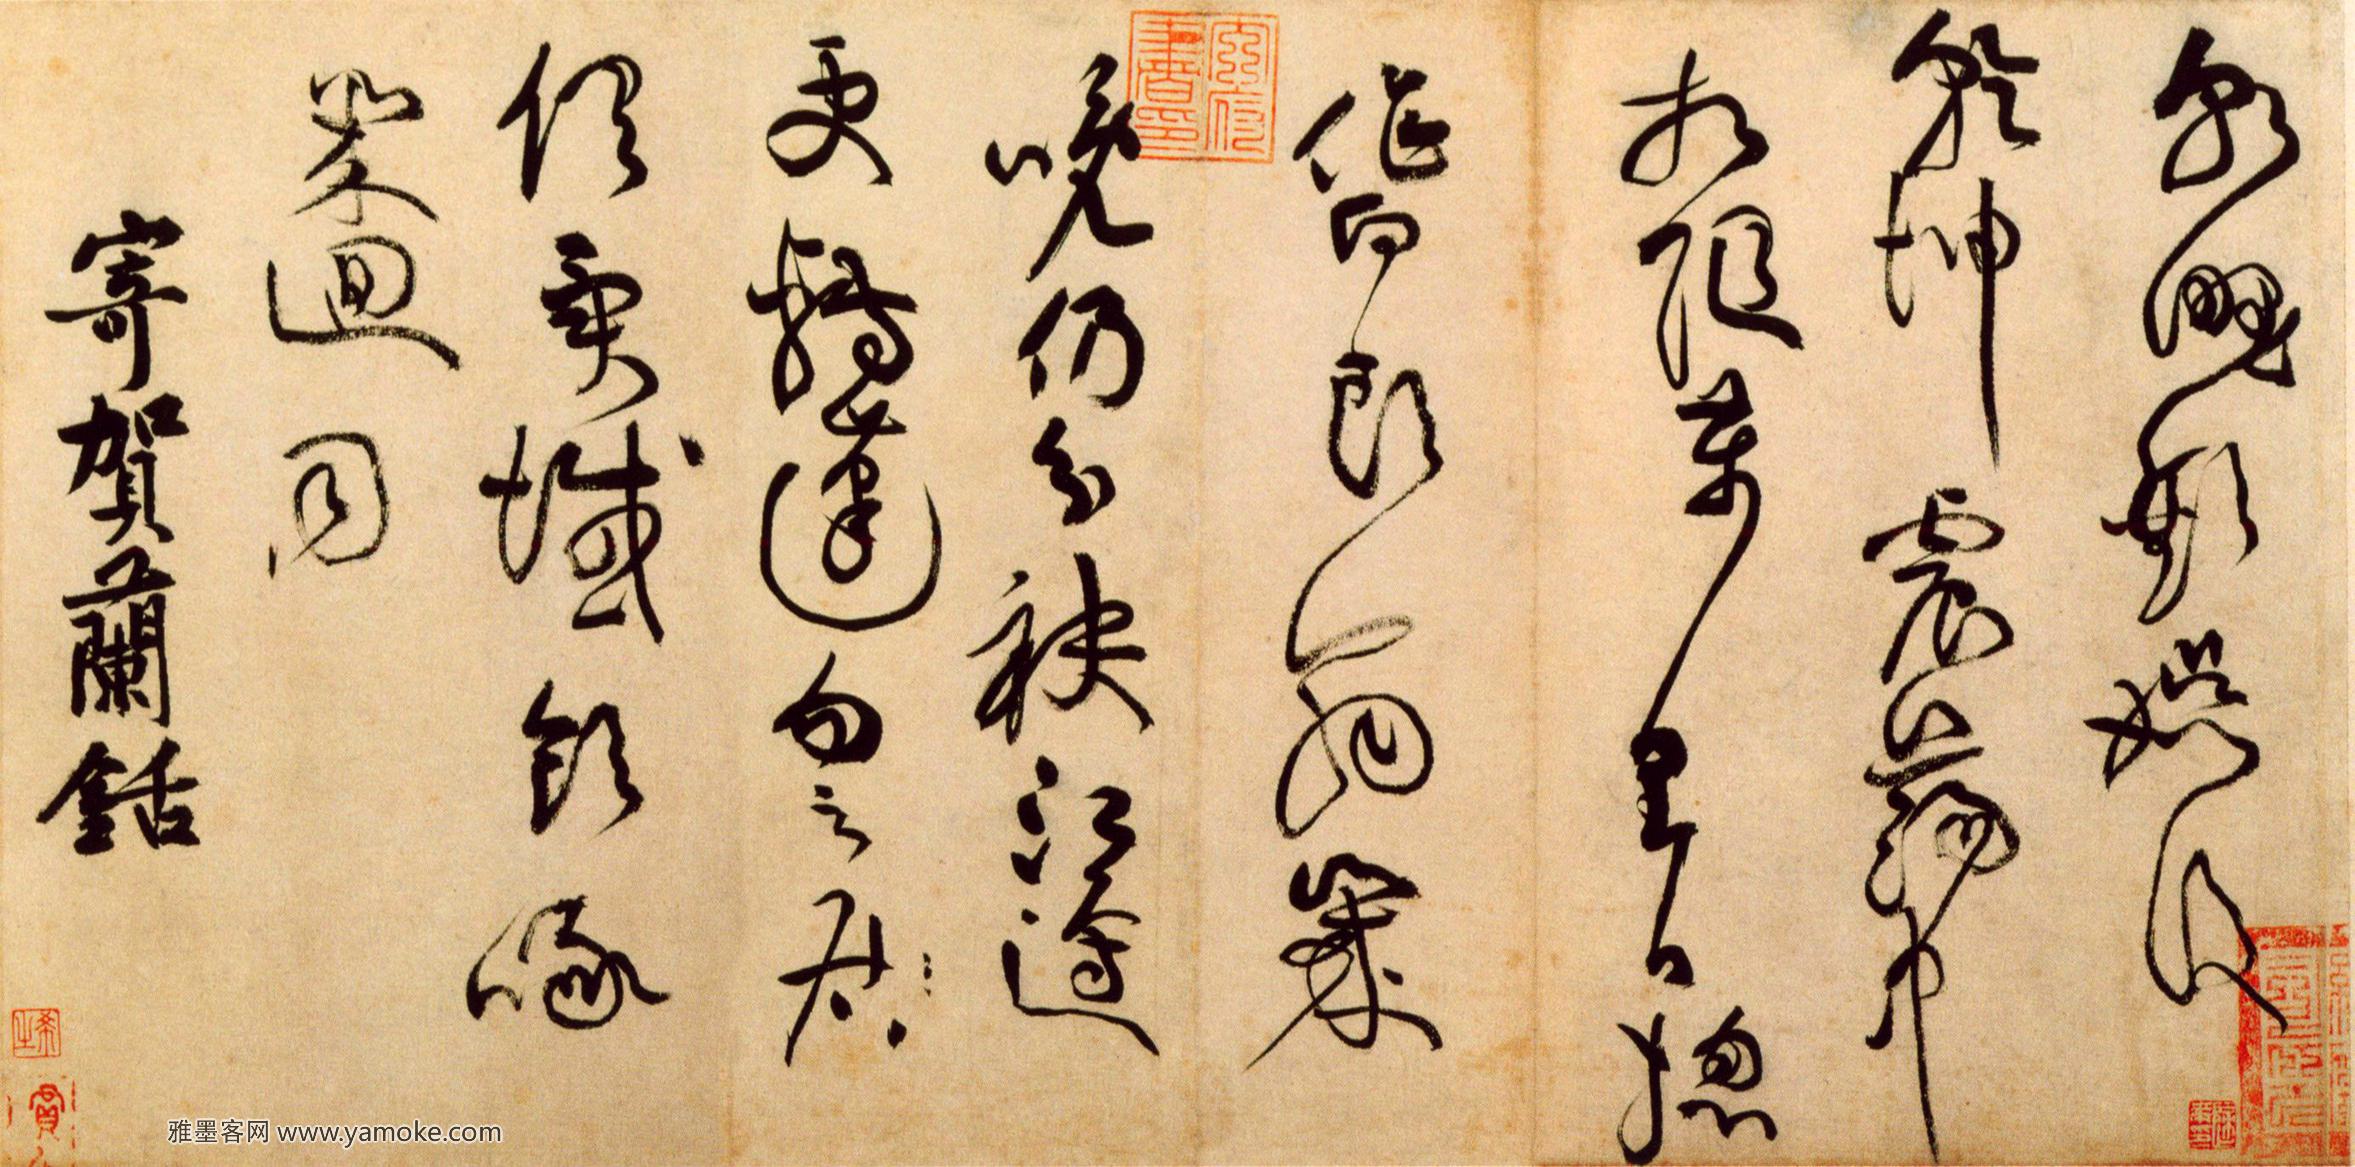 朝野歡娛後
乾坤震蕩中
相隨萬里日揔
作白頭翁歲
晚仍分袂江邊
更轉蓬勿云君
俱異域飲啄
幾迴同
寄賀蘭銛
雅墨客网 www.yamoke.com